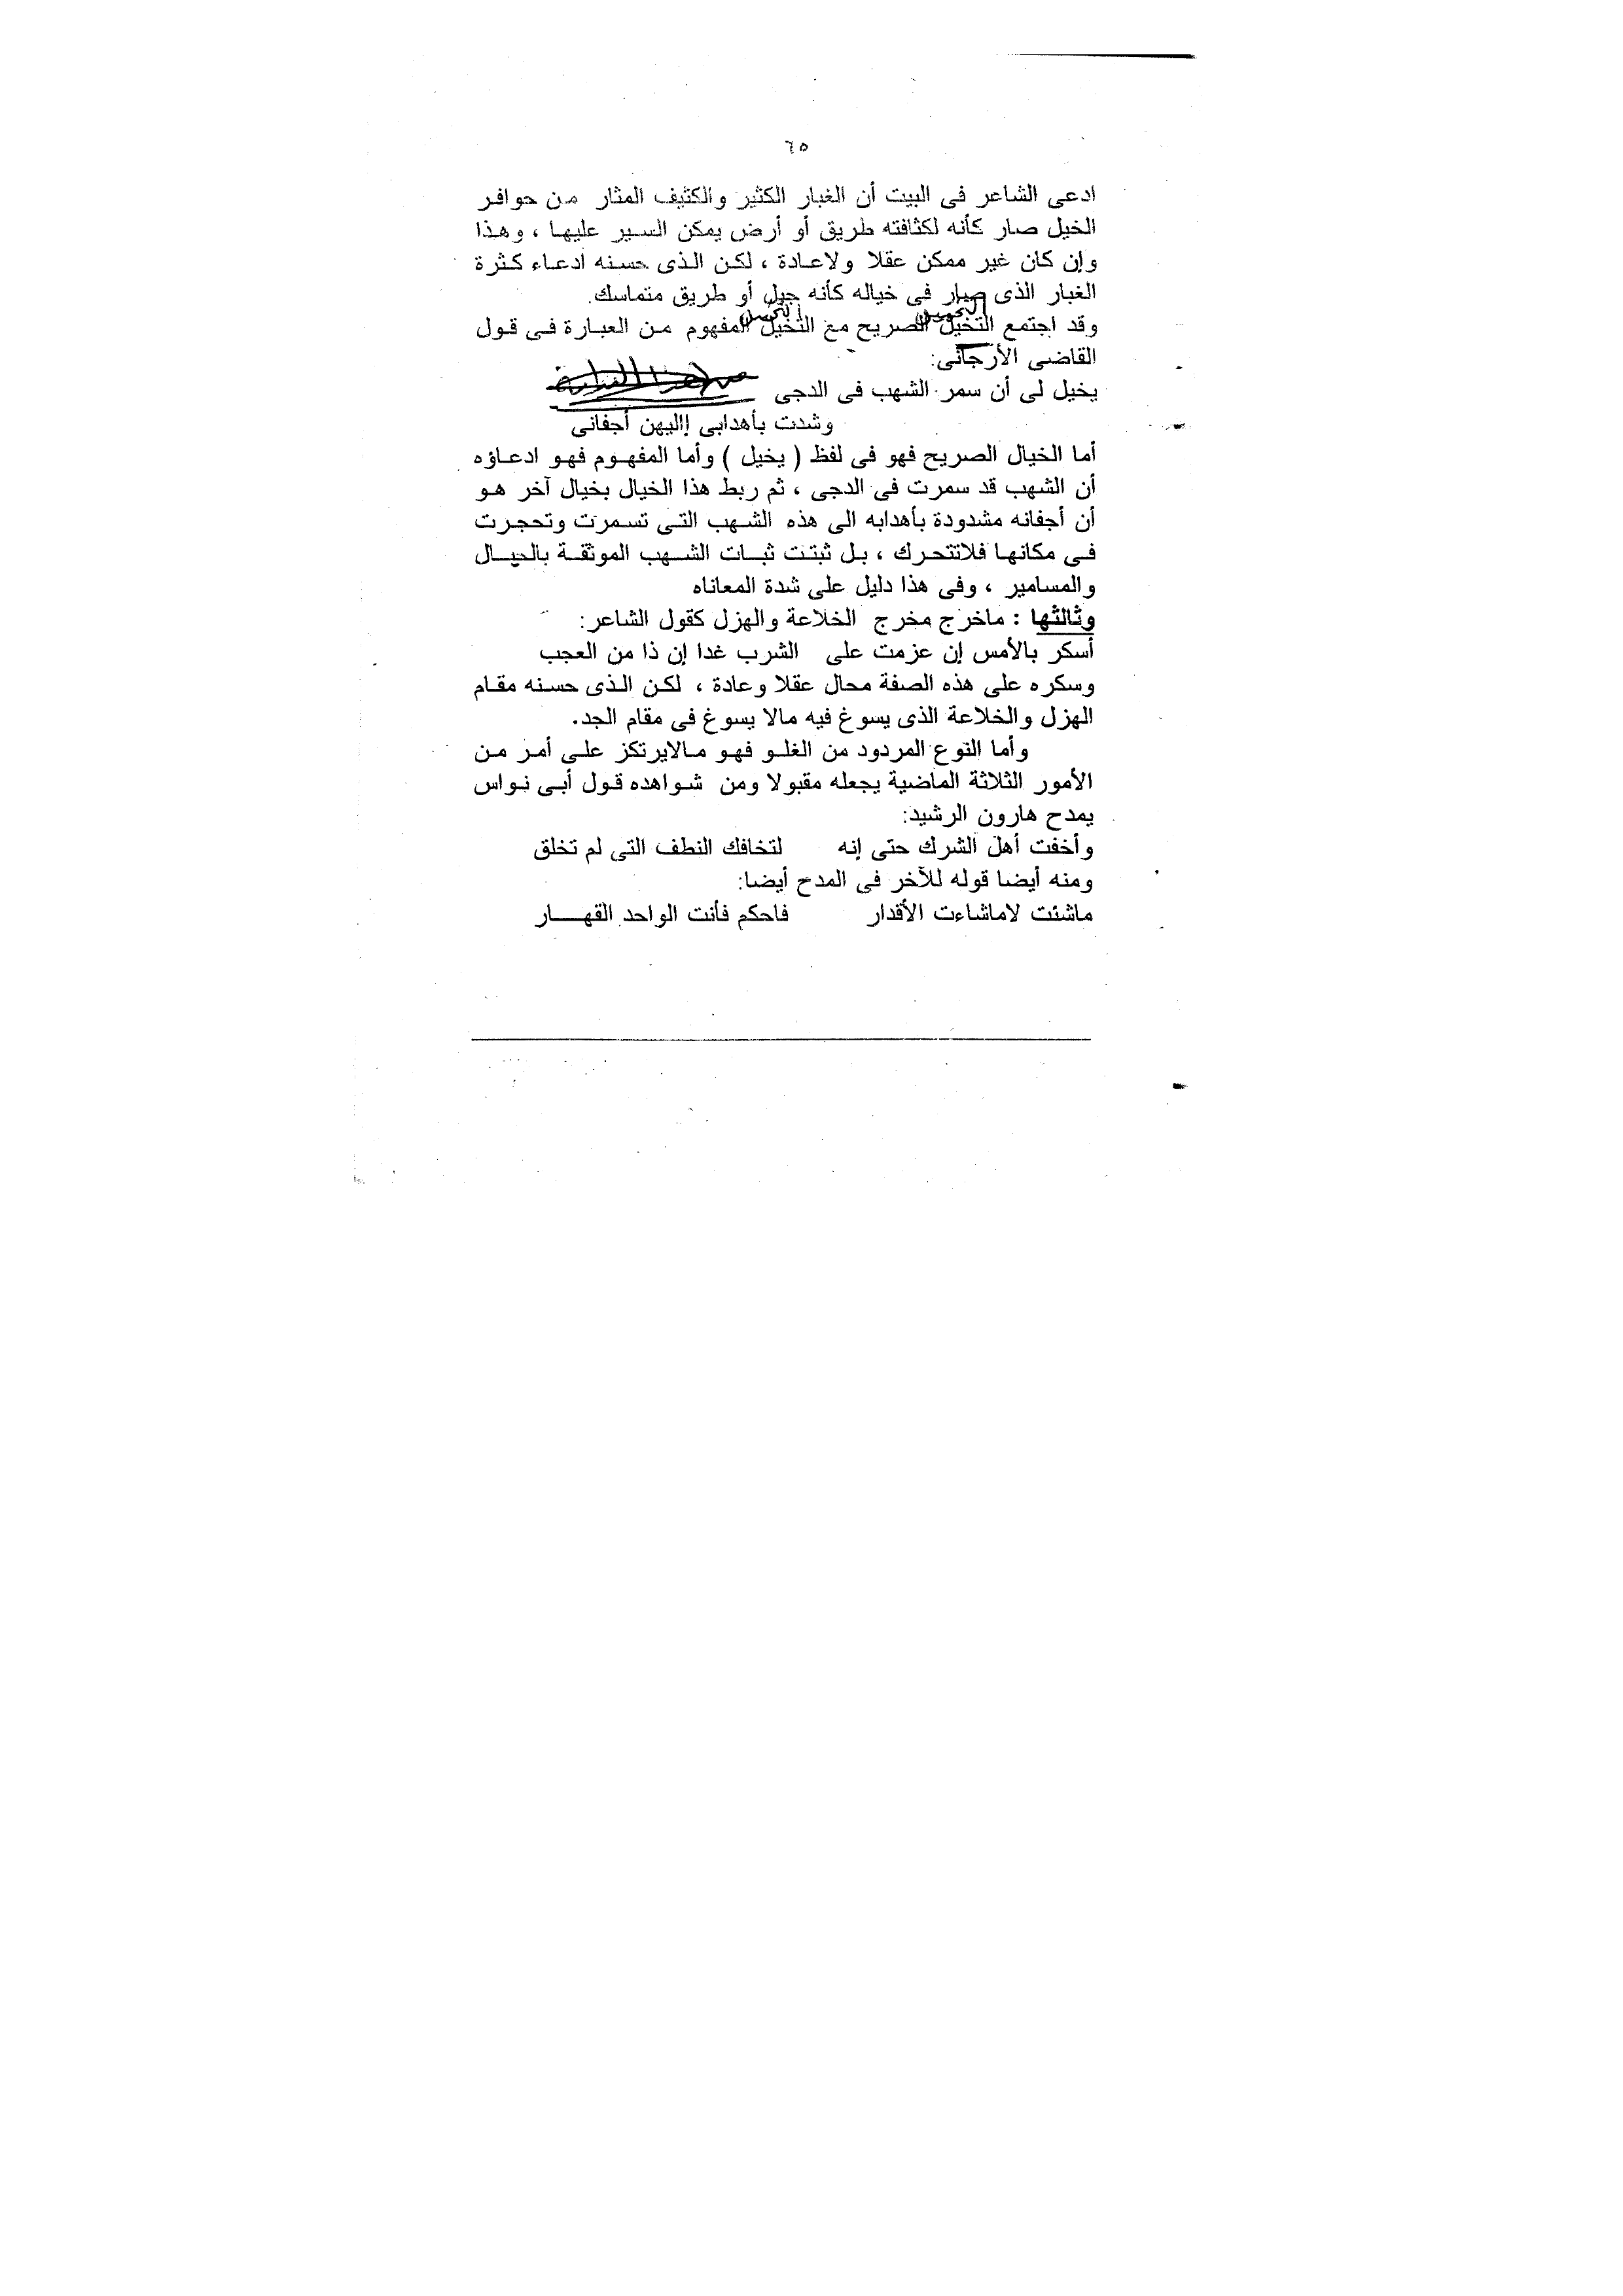 ٦٥
ادعى الشاعر فى البيت أن الغبار الكثير والكثيف المثار من حوافر
الخيل صار كأنه لكثافته طريق أو أرض يمكن السير عليها ، وهذا
وإن كان غير ممكن عقلا ولاعادة ، لكن الذى حسنه ادعاء كثرة
الغبار الذى صار فى خياله كأنه جبل أو طريق متماسك.
وقد اجتمع التخيل الصريح مع التخيل المفهوم من العبارة فى قول
القاضى الأرجانى:
يخيل لى أن سمر الشهب فى الدجى
وشدت بأهدابى إاليهن أجفانى
أما الخيال الصريح فهو فى لفظ ( يخيل ) وأما المفهوم فهو ادعاؤه
أن الشهب قد سمرت فى الدجى ، ثم ربط هذا الخيال بخيال آخر هو
أن أجفانه مشدودة بأهدابه الى هذه الشهب التى تسمرت وتحجرت
فى مكانها فلاتتحرك ، بل ثبتت ثبات الشهب الموثقة بالحبال
والمسامير ، وفى هذا دليل على شدة المعاناه
وثالثها : ماخرج مخرج الخلاعة والهزل كقول الشاعر:
أسكر بالأمس إن عزمت على الشرب غدا إن ذا من العجب
وسكره على هذه الصفة محال عقلا وعادة ، لكن الذى حسنه مقام
الهزل والخلاعة الذى يسوغ فيه مالا يسوغ فى مقام الجد.
وأما النوع المردود من الغلو فهو مالايرتكز على أمر من
الأمور الثلاثة الماضية يجعله مقبولا ومن شواهده قول أبى نواس
يمدح هارون الرشيد:
وأخفت أهل الشرك حتى إنه لتخافك النطف التى لم تخلق
ومنه أيضا قوله للآخر فى المدح أيضا:
ماشئت لاماشاءت الأقدار فاحكم فأنت الواحد القهـــار